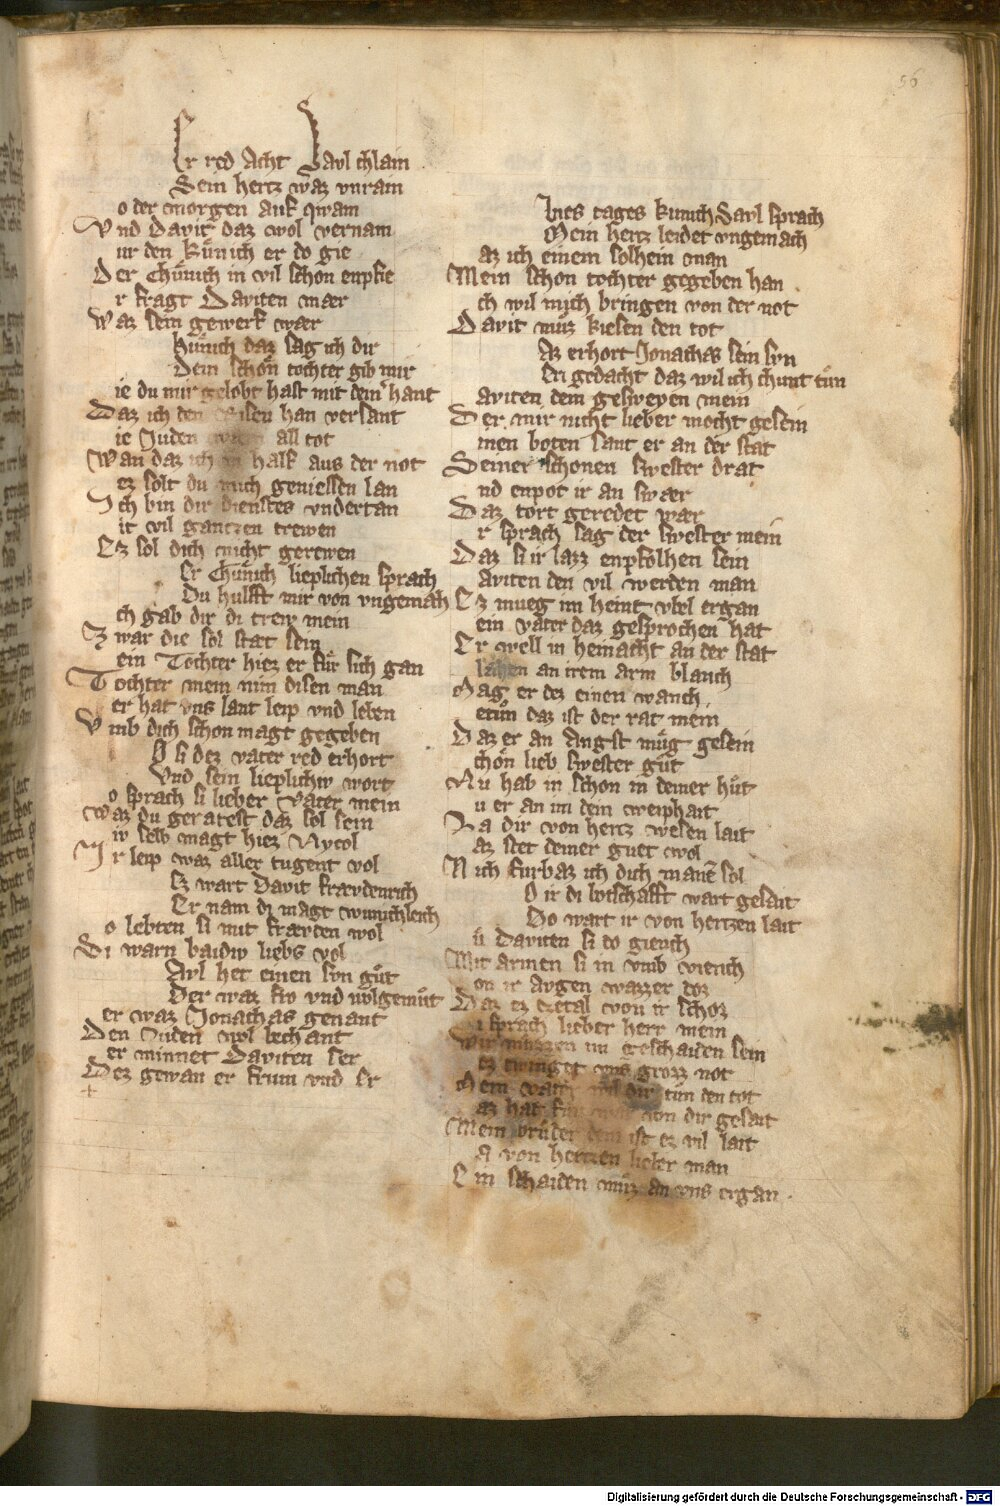 56
Er red Acht Savl chlain
Sein hertz waz vnrain
o der morgen auf qwam
Vnd Davit daz wol vernam
ur den Kunich er do gie
Der Chunich in vil schon enpfie
r fragt Daviten mær
Waz sein gewerf wær
kunich daz sag ich dir
Dein schon tochter gib mir
ie du mir gelobt hast mit deinr hant
Daz ich den han versant
ie Juden all tot
Wan daz ich half aus der not
ez solt du mich geniessen lan
Ich bin dir dienstes vndertan
it vil gantzen trewen
Ez sol dich nicht gerewen
Er Chunich lieplichen sprach
Du hulfft mir von vngemach
ch gab dir di trew mein
Z war die sol stæt sein
ein Tochter hiez er für sich gan
Tochter mein nim disen man
er hat vns laut leip vnd leben
Vmb dich schon magt gegeben
O si dez vater red erhort
Vnd sein lieplichiv wort
o sprach si lieber vater mein
Waz du geratest daz sol sein
iv selb magt hiez Nycol
Ir leip waz aller tugent vol
Ez wart Davit frævdenrich
Er nam di magt wunichleich
o lebten si mit frævden wol
Di warn baidiv liebs vol
Avl het einen svn gůt
Der waz fro vnd wolgemůt
er waz Jonathas genant
Den Juden wol bechant
er minnet Daviten ser
Dez gewan er frum vnd Er
Ines tages kunich Savl sprach
Mein hertz leidet vngemach
az ich einem solhem man
Mein schon tochter gegeben han
ch wil mich bringen von der not
Davit můz kiesen den tot
Az erhort Jonathas sein svn
Er gedacht daz wil ich chunt tůn
aviten dem gesweyen mein
Der mir nicht lieber mocht gesein
inen boten sant er an der stat
Seiner schonen swester drat
nd enpot ir an swær
Daz dort geredet wær
r sprach sag der swester mein
Daz si ir lazz enpfolhen sein
Aviten den vil werden man
Ez mueg im heint vbel ergan
ein vater daz gesprochen hat
Er well in heinacht an der stat
lahen an irem arm blanch
Mag er dez einen wanch
etůn daz ist der rat mein
Daz er an Angst můg gesein
chon lieb swester gůt
Nu hab in schon in deiner hůt
u er an im dem weiphait
La dir von hertz wesen lait
az stet deiner guet wol
Nich furbaz ich dich manen sol
O ir di botschafft wart gesait
Do wart ir von hertzen lait
ů Daviten si do giench
Mit armen si in vmb viench
on ir avgen wazzer doz
Daz ez zetal von ir schoz
i sprach lieber herr mein
Wir muezzen im geschaiden sein
ez twinget vns grozz not
Mein vater wil dir tůn den tot
az hat von dir gesait
Mein brůder dem ist ez vil lait
A von hertzen lieber man
Ein schaiden můz an vns ergan